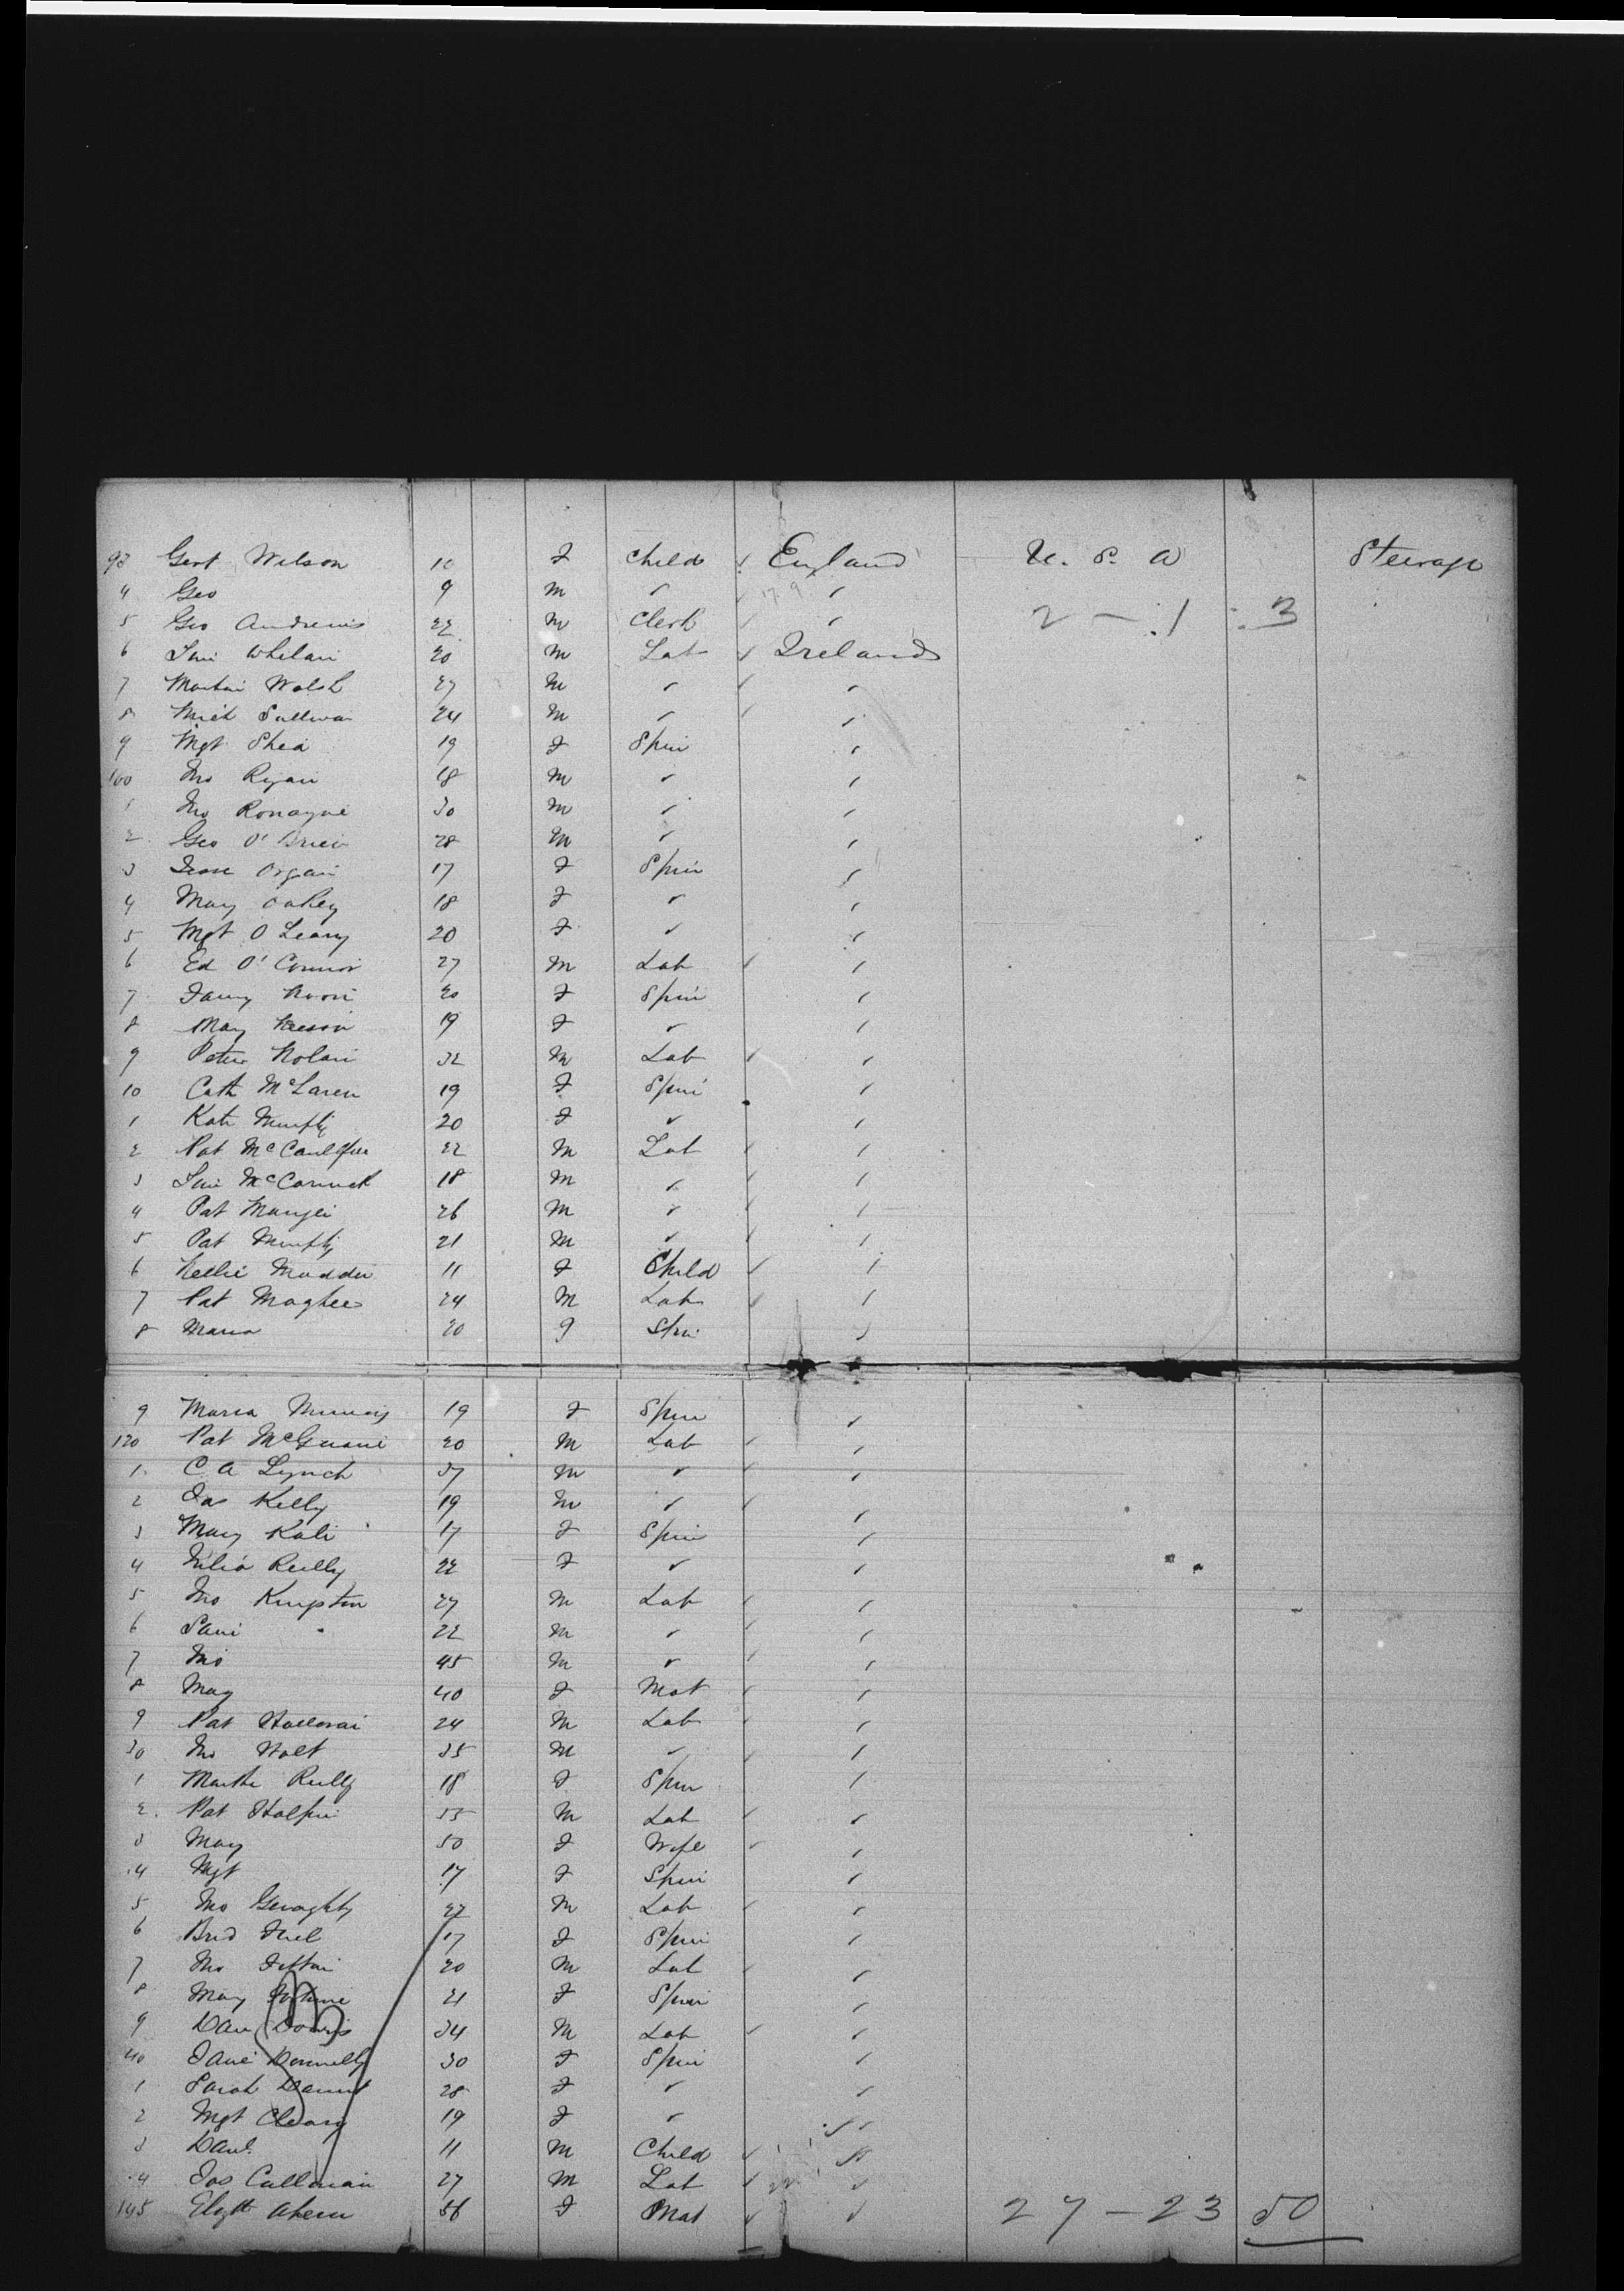 93 Gert Wilson 10 F Child England U. S. A Steerage
4 Geo 9 M " "
5 Geo Andrews 22 M Clerk " 2 - 1 : 3
6 Whelan 20 M Lab Ireland
7 Martin Walsh 27 M " "
8 Mich Sullivan 24 M " "
9 Mgt Shea 19 F Spin "
100 Jno Ryan 18 M " "
1 Jno Ronayne 30 M " "
2 Geo O'Brien 28 M " "
3 17 F Spin "
4 Mary 18 F " "
5 Mgt O Leary 20 F " "
6 Ed O'Connor 27 M Lab "
7 Fanny 20 F Spin "
8 Mary 19 F " "
9 Peter Nolan 32 M Lab "
10 Cath McLaren 19 F Spin "
1 Kate Murphy 20 F " "
2 Pat 22 M Lab "
3 McCormick 18 M " "
4 Pat 26 M " "
5 Pat Murphy 21 M " "
6 Nellie Madden 11 F Child "
7 Pat Maghee 24 M Lab "
8 Maria 20 F Spin "
9 Maria 19 F Spin "
120 Pat 20 M Lab "
1 C A Lynch 37 M " "
2 Jas Kelly 19 M " "
3 Mary 17 F Spin "
4 Julia Reilly 22 F " "
5 Jno Kingston 27 M Lab "
6 22 M " "
7 Jno 45 M " "
8 Mary 40 F Mat "
9 Pat Halloran 24 M Lab "
30 Jno Holt 35 M " "
1 Martha Reilly 18 F Spin "
2 Pat Halpin 55 M Lab "
3 Mary 50 F Wife "
4 Mgt 17 F Spin "
5 Jno Geraghty 27 M Lab "
6 Brid 17 F Spin "
7 Jno 20 M Lab "
8 Mary 21 F Spin "
9 Dan 34 M Lab "
40 Jane Donnelly 30 F Spin "
1 Sarah 28 F " "
2 Mgt Cleary 19 F " "
3 Danl. 11 M Child "
4 Jas Callanan 27 M Lab "
145 Elizth Ahern 56 F Mat " 27 - 23 50